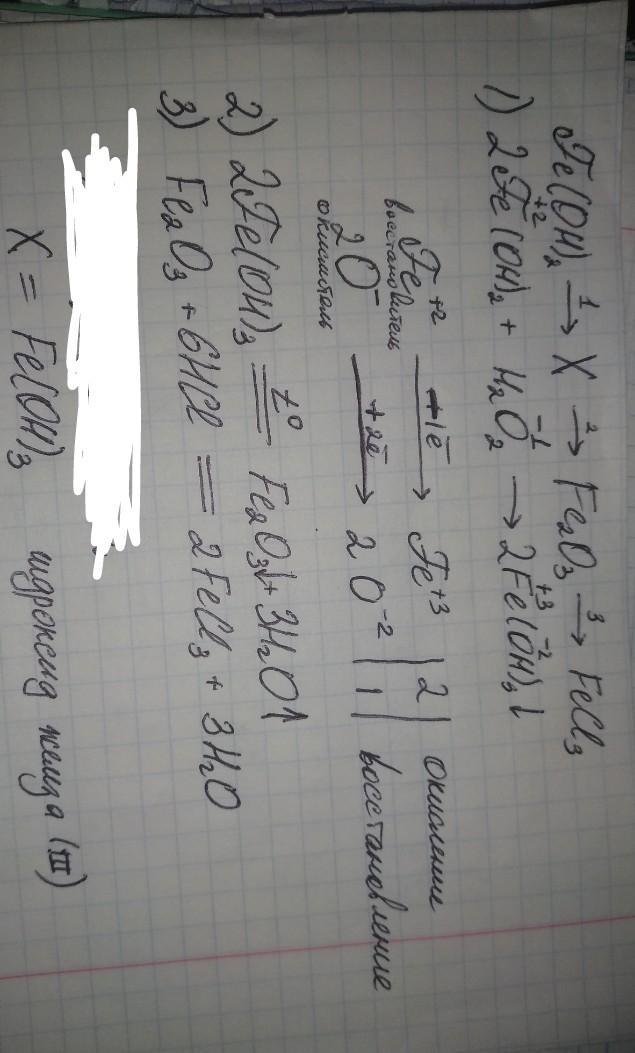 Fe(OH)₂ →¹ X →² Fe₂O₃ →³ FeCl₃
1) 2Fe⁺²(OH)₂ + H₂O₂⁻¹ → 2Fe⁺³(O⁻²H)₃↓
Fe⁺² +1ē → Fe⁺³ | 2 | окисление
восстановитель
2O⁻ +2ē → 2O⁻² | 1 | восстановление
окислитель
2) 2Fe(OH)₃ =t°= Fe₂O₃↓ + 3H₂O↑
3) Fe₂O₃ + 6HCl = 2FeCl₃ + 3H₂O
X = Fe(OH)₃ гидроксид железа (III)